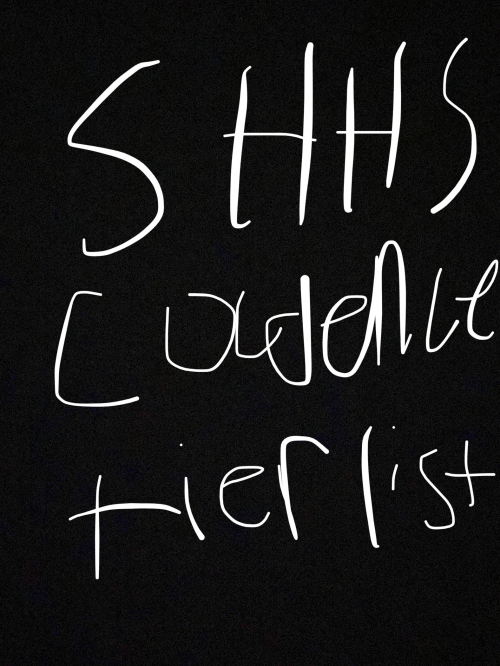 SHHS
Cadence
tier list